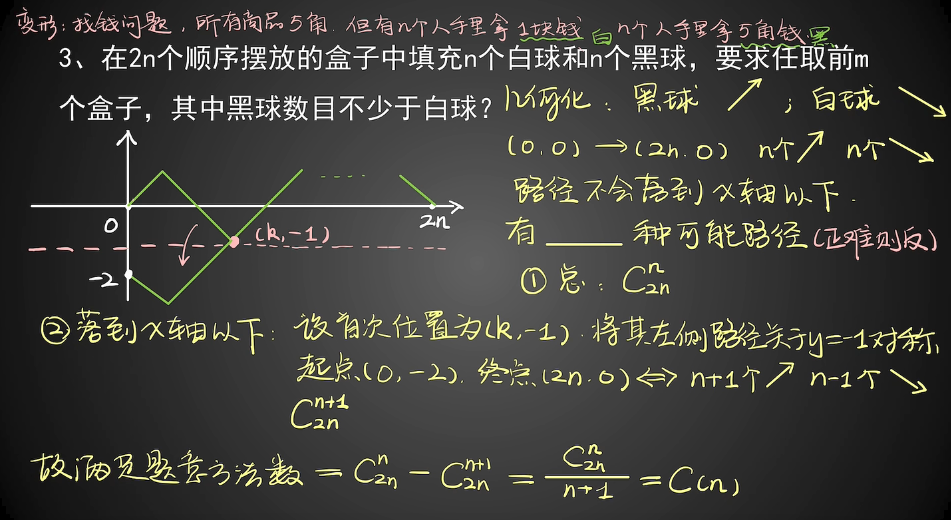 变形:找钱问题,所有商品5角.但有n个人手里拿1块钱白n个人手里拿5角钱.黑
3、在2n个顺序摆放的盒子中填充n个白球和n个黑球,要求任取前m
个盒子,其中黑球数目不少于白球?
几何化:黑球 ↗ ;白球 ↘
(0.0) → (2n.0) n个↗ n个↘
路径不会落到x轴以下.
有 ______ 种可能路径(正难则反)
① 总: C₂ₙⁿ
0
2n
(k,-1)
-2
②落到x轴以下: 设首次位置为(k,-1).将其左侧路径关于y=-1对称,
起点(0,-2).终点(2n.0) ⇔ n+1个↗ n-1个↘
C₂ₙⁿ⁺¹
故满足题意方法数 = C₂ₙⁿ - C₂ₙⁿ⁺¹ = C₂ₙⁿ/(n+1) = C(n)